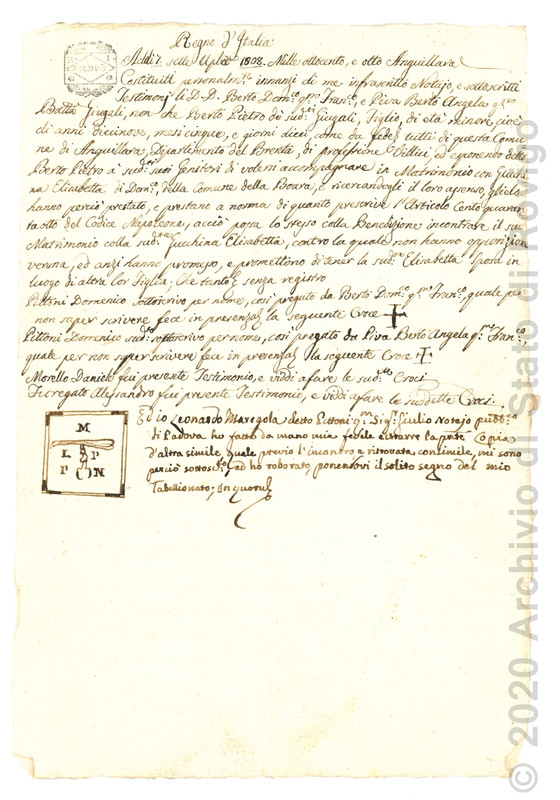 Regno d'Italia
Addì 7. sette Aple 1808. Mille ottocento, e otto Anguillara
Costituiti personalmte innanzi di me infrascritto Notajo, e sottoscritti
Testimonj li D.D. Berto Domco qm Franco, e Piva Berto Angela qm
Batta Giugali, non che Berto Pietro dei sudti Giugali, Figlio, di età minore, cioè
di anni diecinove, mesi cinque, e giorni dieci, come da fede, tutti di questa Comu
ne di Anguillara, Dipartimento del Brenta, di professione Villici, ed esponendo detto
Berto Pietro a' sudti suoi Genitori di volersi accompagnare in Matrimonio con Gucchi
na Elisabetta di Domco, della Comune della Boara, e ricercandogli il loro assenso, glielo
hanno perciò prestato, e prestano a norma di quanto prescrive l'Articolo Cento quaran
taotto del Codice Napoleone, acciò possa lo stesso colla Benedizione incontrare il suo
Matrimonio colla sudta Gucchina Elisabetta, contro la quale non hanno opposizione
veruna, ed anzi hanno promesso, e promettono di tener la sudta Elisabetta Sposa in
luogo di altra lor Figlia, Che tanto senza registro
Pittoni Domenico sottoscrivo per nome, così pregato da Berto Domco qm Franco, quale per
non saper scrivere fece in presenza la seguente Croce +
Pittoni Domenico sudto sottoscrivo per nome, così pregato da Piva Berto Angela qm Franco,
quale per non saper scrivere fece in presenza la seguente Croce +
Morello Daniele fui presente Testimonio, e viddi a fare le sudte Croci
Ficregato Alessandro fui presente Testimonio, e viddi a fare le suddette Croci
M
L P
P O N
Ed io Leonardo Maregola detto Pittoni qm Sigr Giulio Notajo pubbco
di Padova ho fatto da mano mia fedile estrarre la pnte Copia
d'altra simile, quale previo l'incontro e ritrovata consimile, mi sono
perciò sottoscto, ed ho roborato, ponendovi il solito segno del mio
Tabellionato; In quorum
© 2020 Archivio di Stato di Rovigo